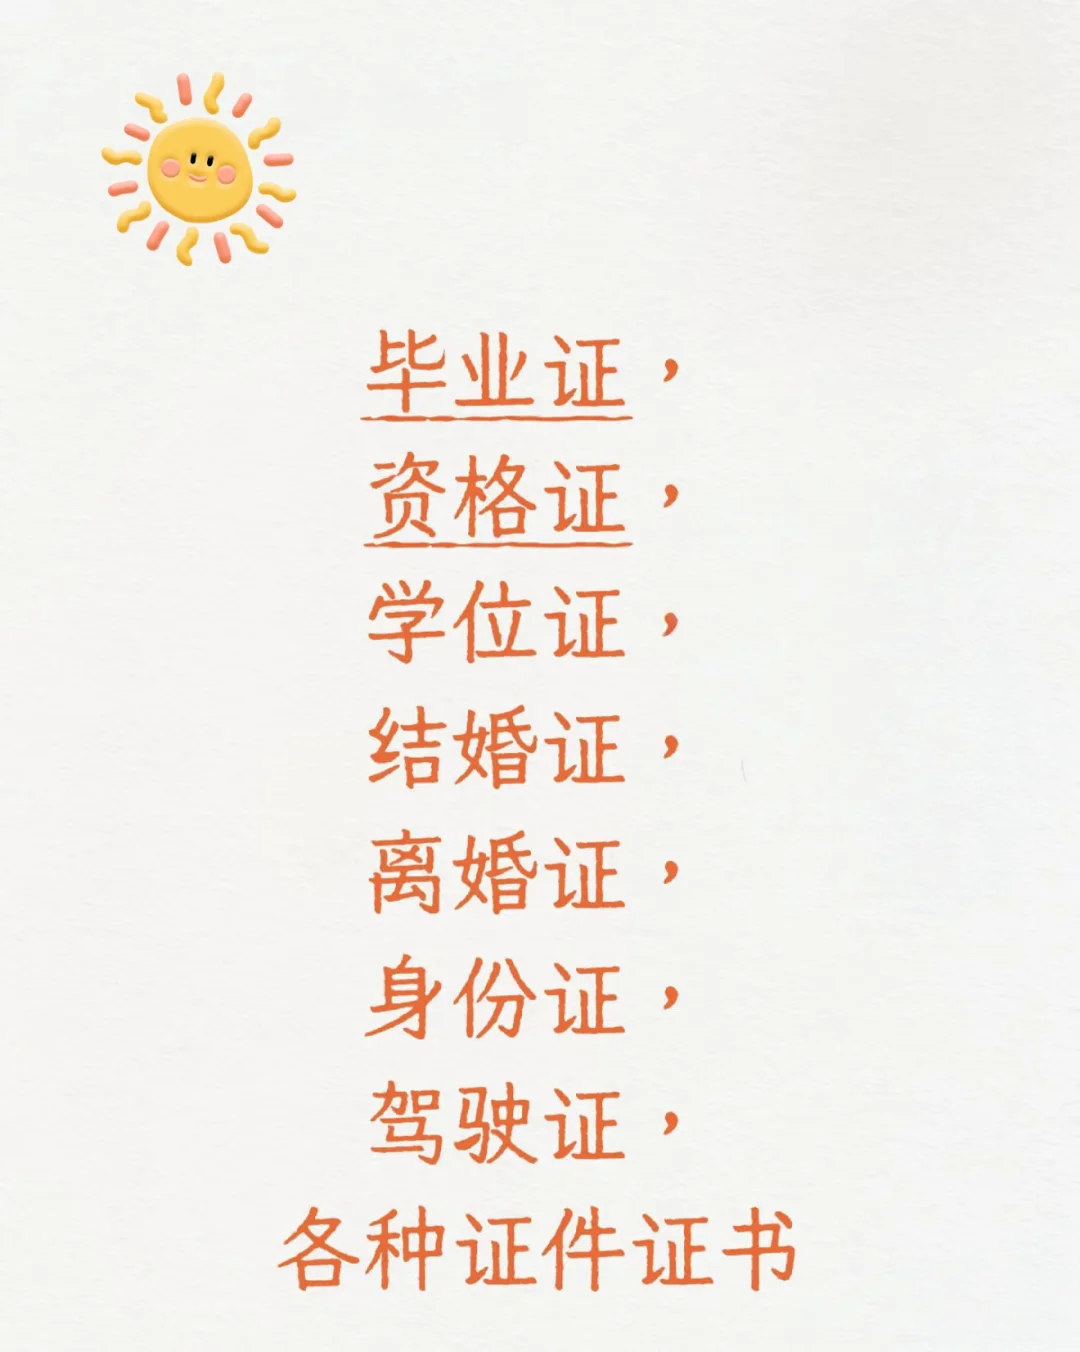 毕业证，
资格证，
学位证，
结婚证，
离婚证，
身份证，
驾驶证，
各种证件证书